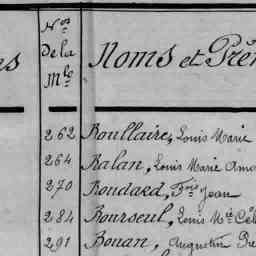 Nos de la Mle Noms et Pré
262 Roullaire, Louis Marie
264 Ralan, Louis Marie Ama
270 Roudard, Fois Jean
284 Rourseul, Louis Mie Cél
291 Rouan, Augustin